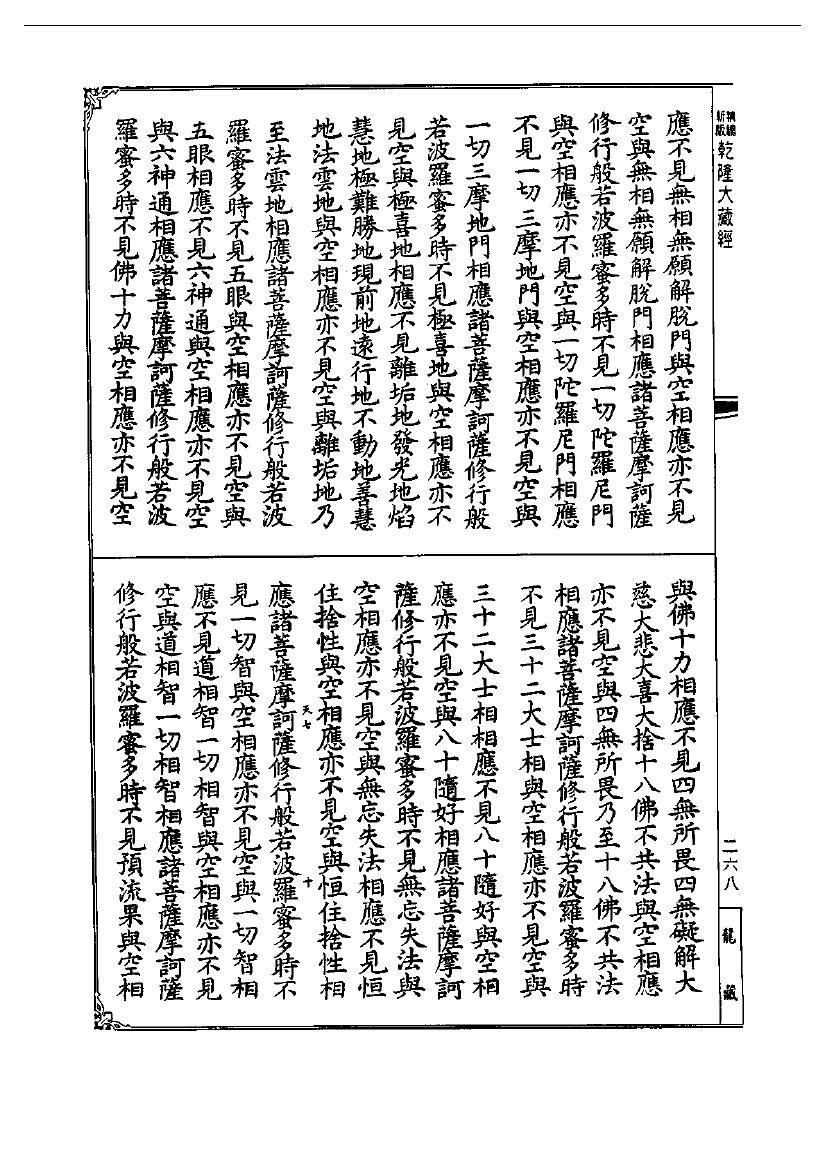 新編
縮版
乾隆大藏經
應不見無相無願解脫門與空相應亦不見
空與無相無願解脫門相應諸菩薩摩訶薩
修行般若波羅蜜多時不見一切陀羅尼門
與空相應亦不見空與一切陀羅尼門相應
不見一切三摩地門與空相應亦不見空與
一切三摩地門相應諸菩薩摩訶薩修行般
若波羅蜜多時不見極喜地與空相應亦不
見空與極喜地相應不見離垢地發光地焰
慧地極難勝地現前地遠行地不動地善慧
地法雲地與空相應亦不見空與離垢地乃
至法雲地相應諸菩薩摩訶薩修行般若波
羅蜜多時不見五眼與空相應亦不見空與
五眼相應不見六神通與空相應亦不見空
與六神通相應諸菩薩摩訶薩修行般若波
羅蜜多時不見佛十力與空相應亦不見空
與佛十力相應不見四無所畏四無礙解大
慈大悲大喜大捨十八佛不共法與空相應
亦不見空與四無所畏乃至十八佛不共法
相應諸菩薩摩訶薩修行般若波羅蜜多時
不見三十二大士相與空相應亦不見空與
三十二大士相相應不見八十隨好與空相
應亦不見空與八十隨好相應諸菩薩摩訶
薩修行般若波羅蜜多時不見無忘失法與
空相應亦不見空與無忘失法相應不見恒
住捨性與空相應亦不見空與恒住捨性相
天七
十
應諸菩薩摩訶薩修行般若波羅蜜多時不
見一切智與空相應亦不見空與一切智相
應不見道相智一切相智與空相應亦不見
空與道相智一切相智相應諸菩薩摩訶薩
修行般若波羅蜜多時不見預流果與空相
二六八
龍藏